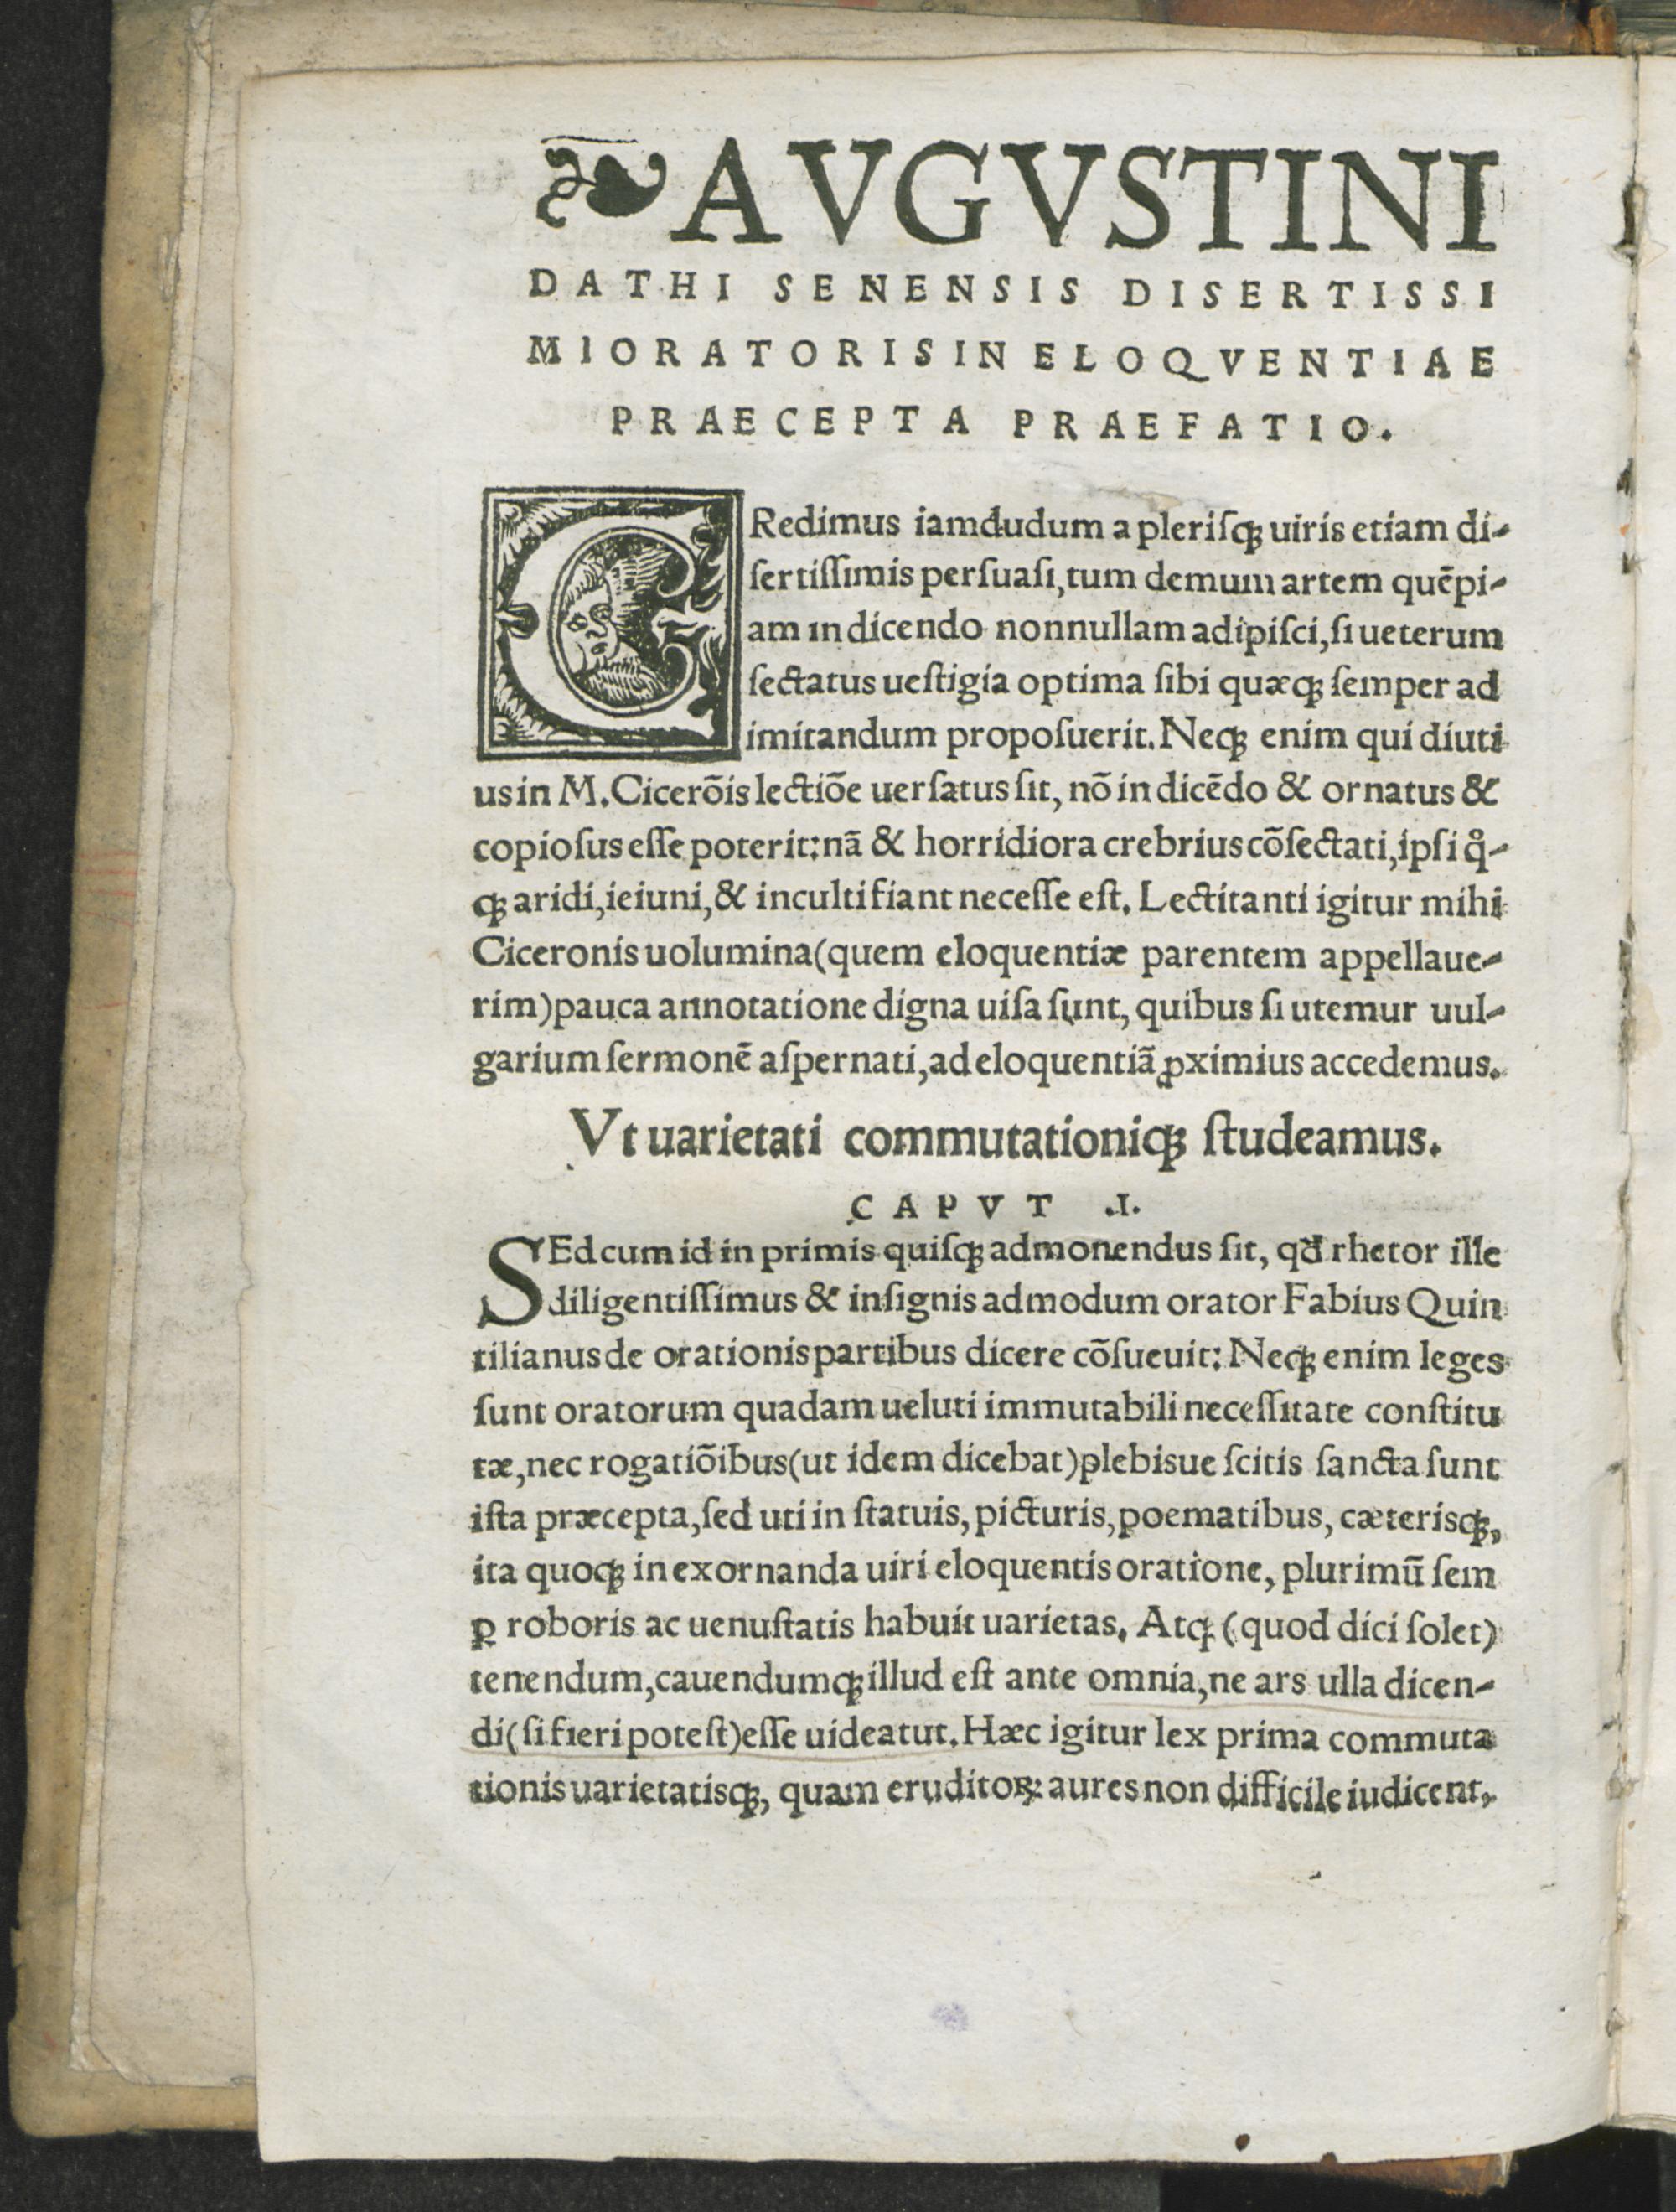 ❧AVGVSTINI
DATHI SENENSIS DISERTISSI
MIORATORISIN ELOQVENTIAE
PRAECEPTA PRAEFATIO.
CRedimus iamdudum a pleriſqꝫ uiris etiam di-
ſertiſſimis perſuaſi, tum demum artem quēpi-
am in dicendo nonnullam adipiſci, ſi ueterum
ſectatus ueſtigia optima ſibi quæqꝫ ſemper ad
imitandum propoſuerit. Neqꝫ enim qui diuti
us in M. Cicerōis lectiōe uerſatus ſit, nō in dicēdo & ornatus &
copioſus eſſe poterit: nā & horridiora crebrius cōſectati, ipſi qͦ-
qꝫ aridi, ieiuni, & inculti fiant neceſſe eſt. Lectitanti igitur mihi
Ciceronis uolumina (quem eloquentiæ parentem appellaue-
rim) pauca annotatione digna uiſa ſunt, quibus ſi utemur uul-
garium ſermonē aſpernati, ad eloquentiā ꝓximius accedemus.
Vt uarietati commutationiqꝫ ſtudeamus.
CAPVT .I.
SEd cum id in primis quiſqꝫ admonendus ſit, qđ rhetor ille
diligentiſſimus & inſignis admodum orator Fabius Quin
tilianus de orationis partibus dicere cōſueuit: Neqꝫ enim leges
ſunt oratorum quadam ueluti immutabili neceſſitate conſtitu
tæ, nec rogatiōibus (ut idem dicebat) plebisue ſcitis ſancta ſunt
iſta præcepta, ſed uti in ſtatuis, picturis, poematibus, cæterisqꝫ,
ita quoqꝫ in exornanda uiri eloquentis oratione, plurimū ſem
ꝑ roboris ac uenuſtatis habuit uarietas. Atqꝫ (quod dici ſolet)
tenendum, cauendumqꝫ illud eſt ante omnia, ne ars ulla dicen-
di (ſi fieri poteſt) eſſe uideatut. Hæc igitur lex prima commuta
tionis uarietatisqꝫ, quam eruditoꝝ aures non difficile iudicent,